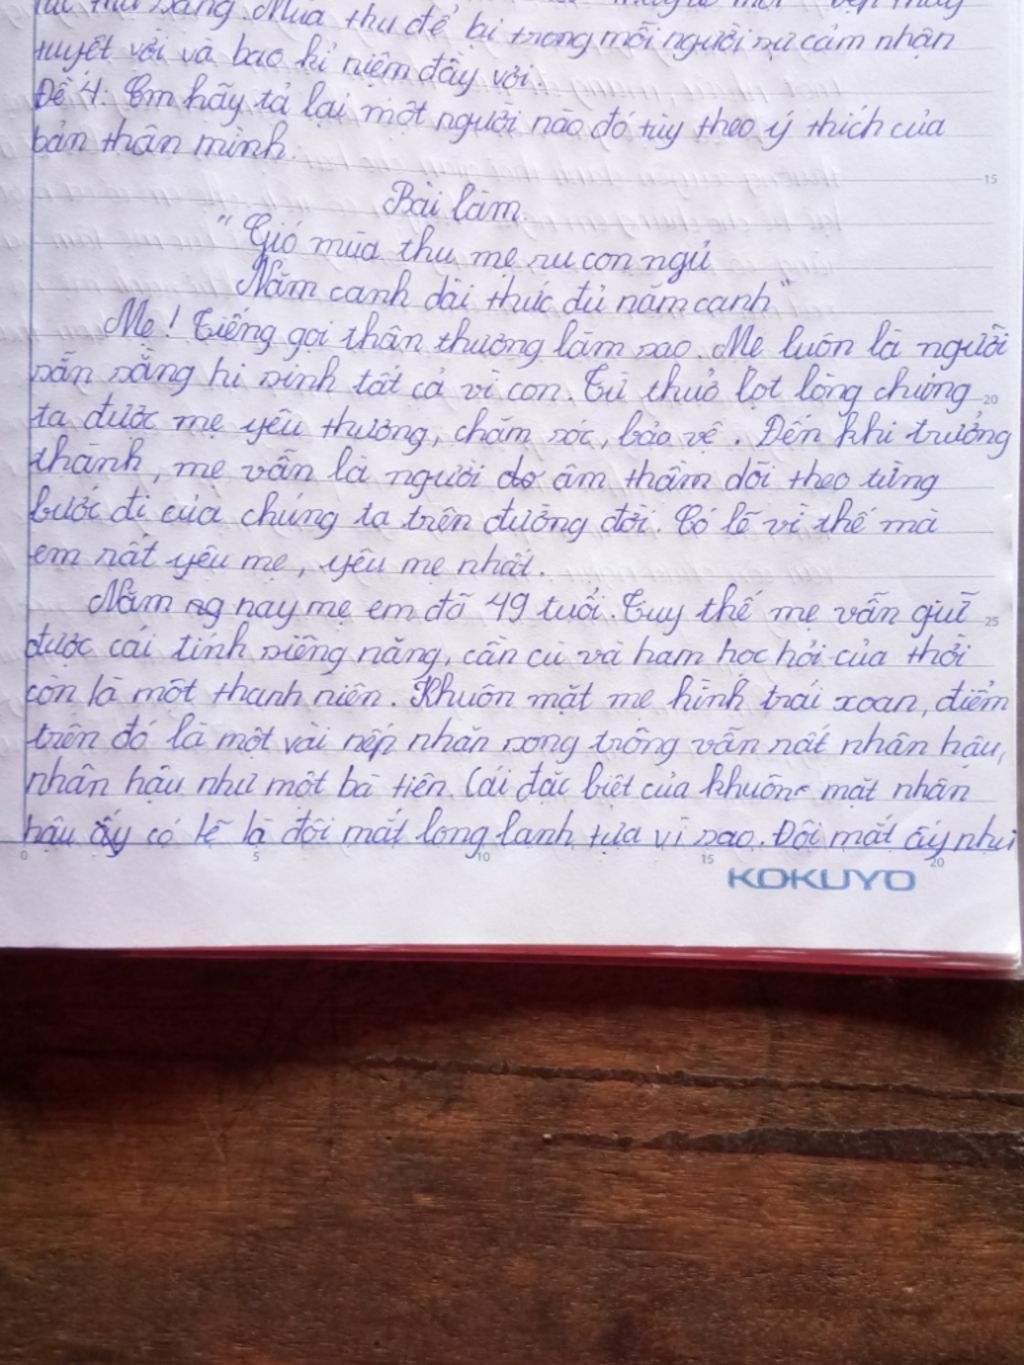 sáng. Mùa thu để lại trong mỗi người sự cảm nhận
tuyết vời và bao kỉ niệm đầy vơi.
Đề 4: Em hãy tả lại một người nào đó tùy theo ý thích của
bản thân mình.
15
Bài làm.
"Gió mùa thu mẹ ru con ngủ
Năm canh dài thức đủ năm canh"
Mẹ! Tiếng gọi thân thương làm sao. Mẹ luôn là người
sẵn sàng hi sinh tất cả vì con. Từ thuở lọt lòng chúng
20
ta được mẹ yêu thương, chăm sóc, bảo vệ. Đến khi trưởng
thành, mẹ vẫn là người âm thầm dõi theo từng
bước đi của chúng ta trên đường đời. Có lẽ vì thế mà
em rất yêu mẹ, yêu mẹ nhất.
Năm nay mẹ em đã 49 tuổi. Tuy thế mẹ vẫn giữ
25
được cái tính siêng năng, cần cù và ham học hỏi của thời
còn là một thanh niên. Khuôn mặt mẹ hình trái xoan, điểm
trên đó là một vài nếp nhăn song trông vẫn rất nhân hậu,
nhân hậu như một bà tiên. Cái đặc biệt của khuôn mặt nhân
hậu ấy có lẽ là đôi mắt long lanh tựa vì sao. Đôi mắt ấy như
0 5 10 15 20
KOKUYO